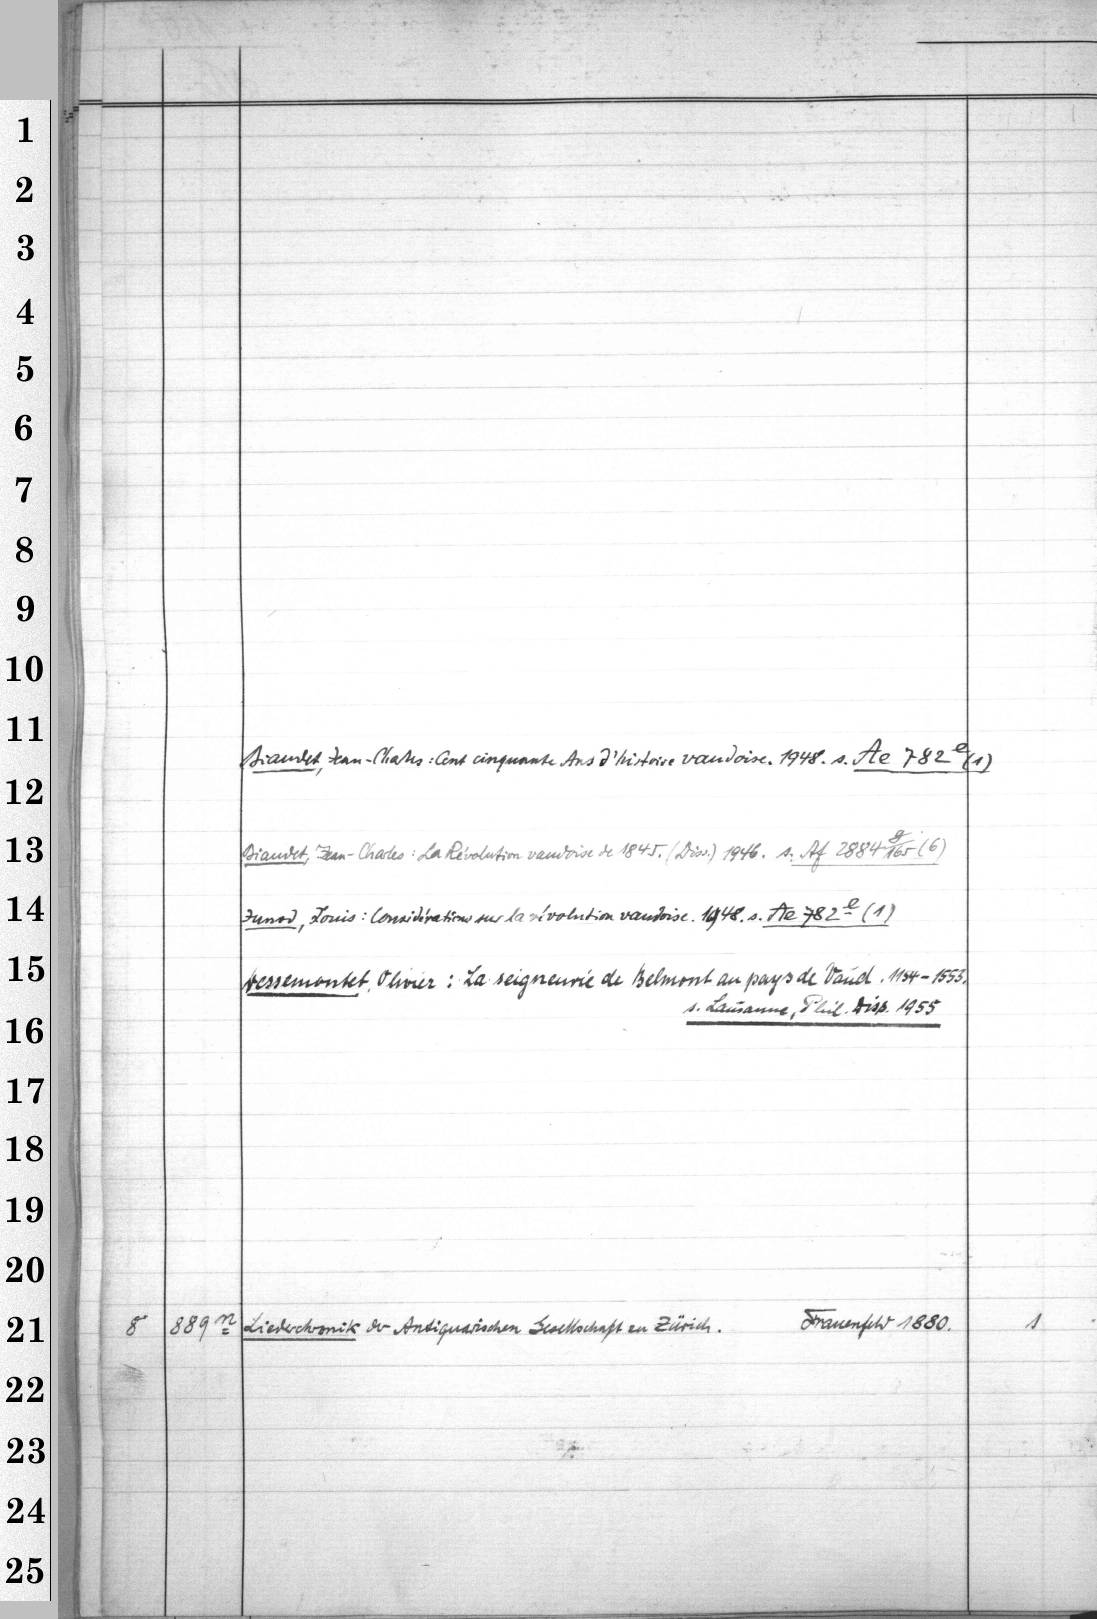 1
2
3
4
5
6
7
8
9
10
11
Biaudet, Jean-Charles: Cent cinquante Ans d'histoire vaudoise. 1948. s. Ae 782 e (1)
12
13
Biaudet, Jean-Charles: La Révolution vaudoise de 1845. (Diss.) 1946. s. Af 2884 g/165 (6)
14
Junod, Louis: Considérations sur la révolution vaudoise. 1948. s. Ae 782 e (1)
15
Dessemontet, Olivier: La seigneurie de Belmont au pays de Vaud. 1154-1553.
s. Lausanne, Phil. Diss. 1955
16
17
18
19
20
21
8 889 n Liederchronik der Antiquarischen Gesellschaft zu Zürich. Frauenfeld 1880. 1
22
23
24
25